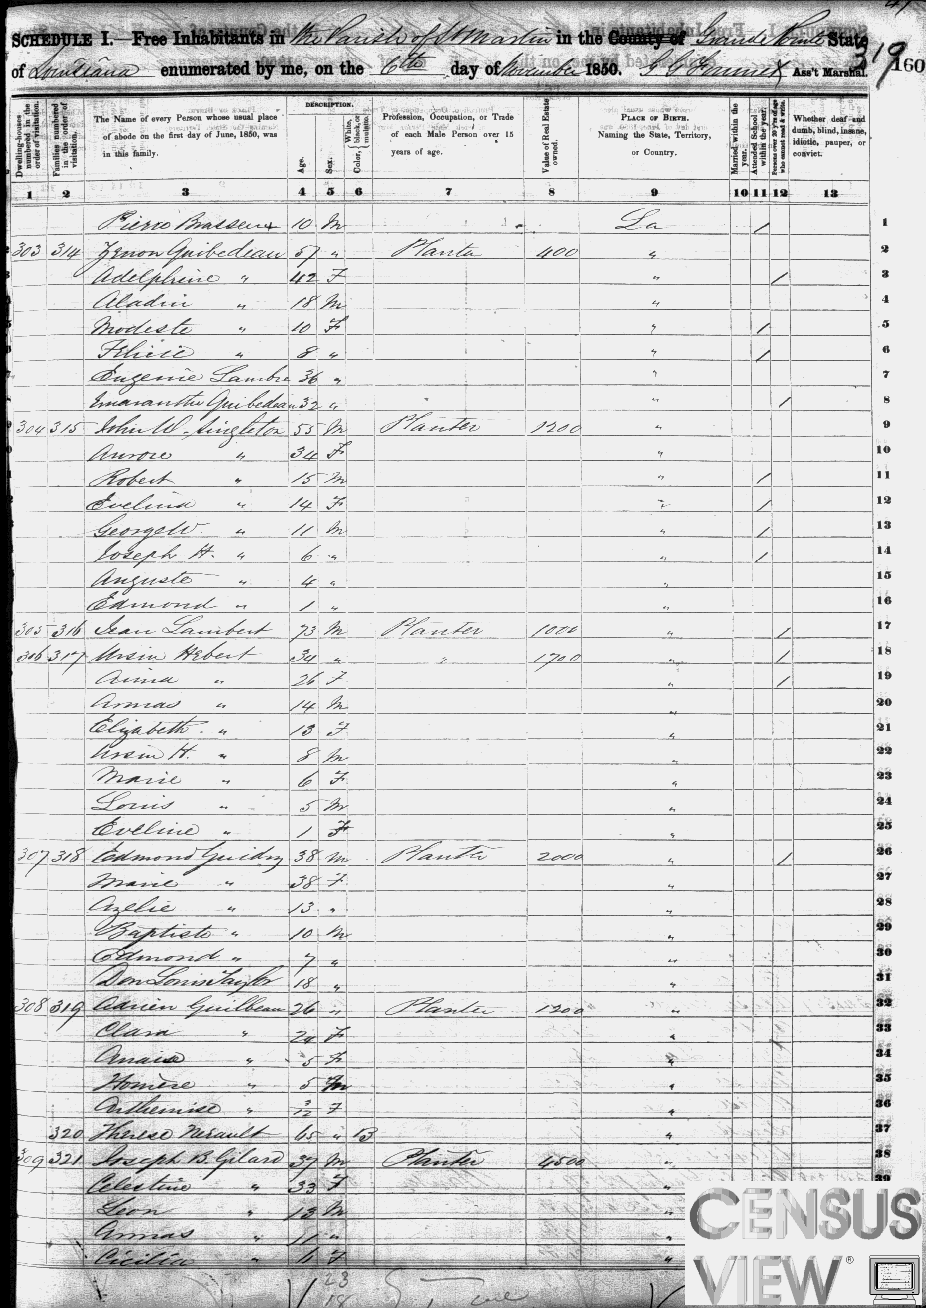 SCHEDULE I.—Free Inhabitants in the Parish of St Martin in the County of Grande Pointe State
of Louisiana enumerated by me, on the 6th day of November 1850. Ass't Marshal. 319 160
Dwelling-houses numbered in the order of visitation.
Families numbered in the order of visitation.
The Name of every Person whose usual place of abode on the first day of June, 1850, was in this family.
DESCRIPTION.
Age.
Sex.
Color, White, black, or mulatto.
Profession, Occupation, or Trade of each Male Person over 15 years of age.
Value of Real Estate owned.
PLACE OF BIRTH. Naming the State, Territory, or Country.
Married within the year.
Attended School within the year.
Persons over 20 y'rs of age who cannot read & write.
Whether deaf and dumb, blind, insane, idiotic, pauper, or convict.
1 2 3 4 5 6 7 8 9 10 11 12 13
Pierre Brasseux 10 M La / 1
303 314 Zenon Guibedeau 57 " Planter 400 " 2
Adelphine " 42 F " / 3
Aladin " 18 M " 4
Modeste " 10 F " / 5
Felicie " 8 " " / 6
Eugenie Lambre 36 " " 7
Guibedeau 32 " " / 8
304 315 John W. Singleton 55 M Planter 1200 " 9
Aurore " 34 F " 10
Robert " 15 M " / 11
Evelina " 14 F " / 12
George W " 11 M " / 13
Joseph H. " 6 " " / 14
Auguste " 4 " " 15
Edmond " 1 " " 16
305 316 Jean Lambert 73 M Planter 1000 " / 17
306 317 Ursin Hebert 34 " " 1700 " / 18
Anna " 26 F " / 19
Armas " 14 M " 20
Elizabeth " 13 F " 21
Ursin H. " 8 M " 22
Marie " 6 F " 23
Louis " 5 M " 24
Eveline " 1 F " 25
307 318 Edmond Guidry 38 M Planter 2000 " / 26
Marie " 38 F " 27
Azelie " 13 " " 28
Baptiste " 10 M " 29
Edmond " 7 " " 30
Don Louis Taylor 18 " " 31
308 319 Adrien Guilbeau 26 " Planter 1200 " 32
Clara " 20 F " 33
Anais " 5 F " 34
Homère " 5 M " 35
Arthemise " 3/12 F " 36
320 Therese Nerault 65 " B " 37
309 321 Joseph B. Gilard 37 M Planter 4500 " 38
Celestine " 33 F " 39
Leon " 13 M "
Armas " 11 " "
Cicilia " 1 F "
23
18
CENSUS
VIEW®